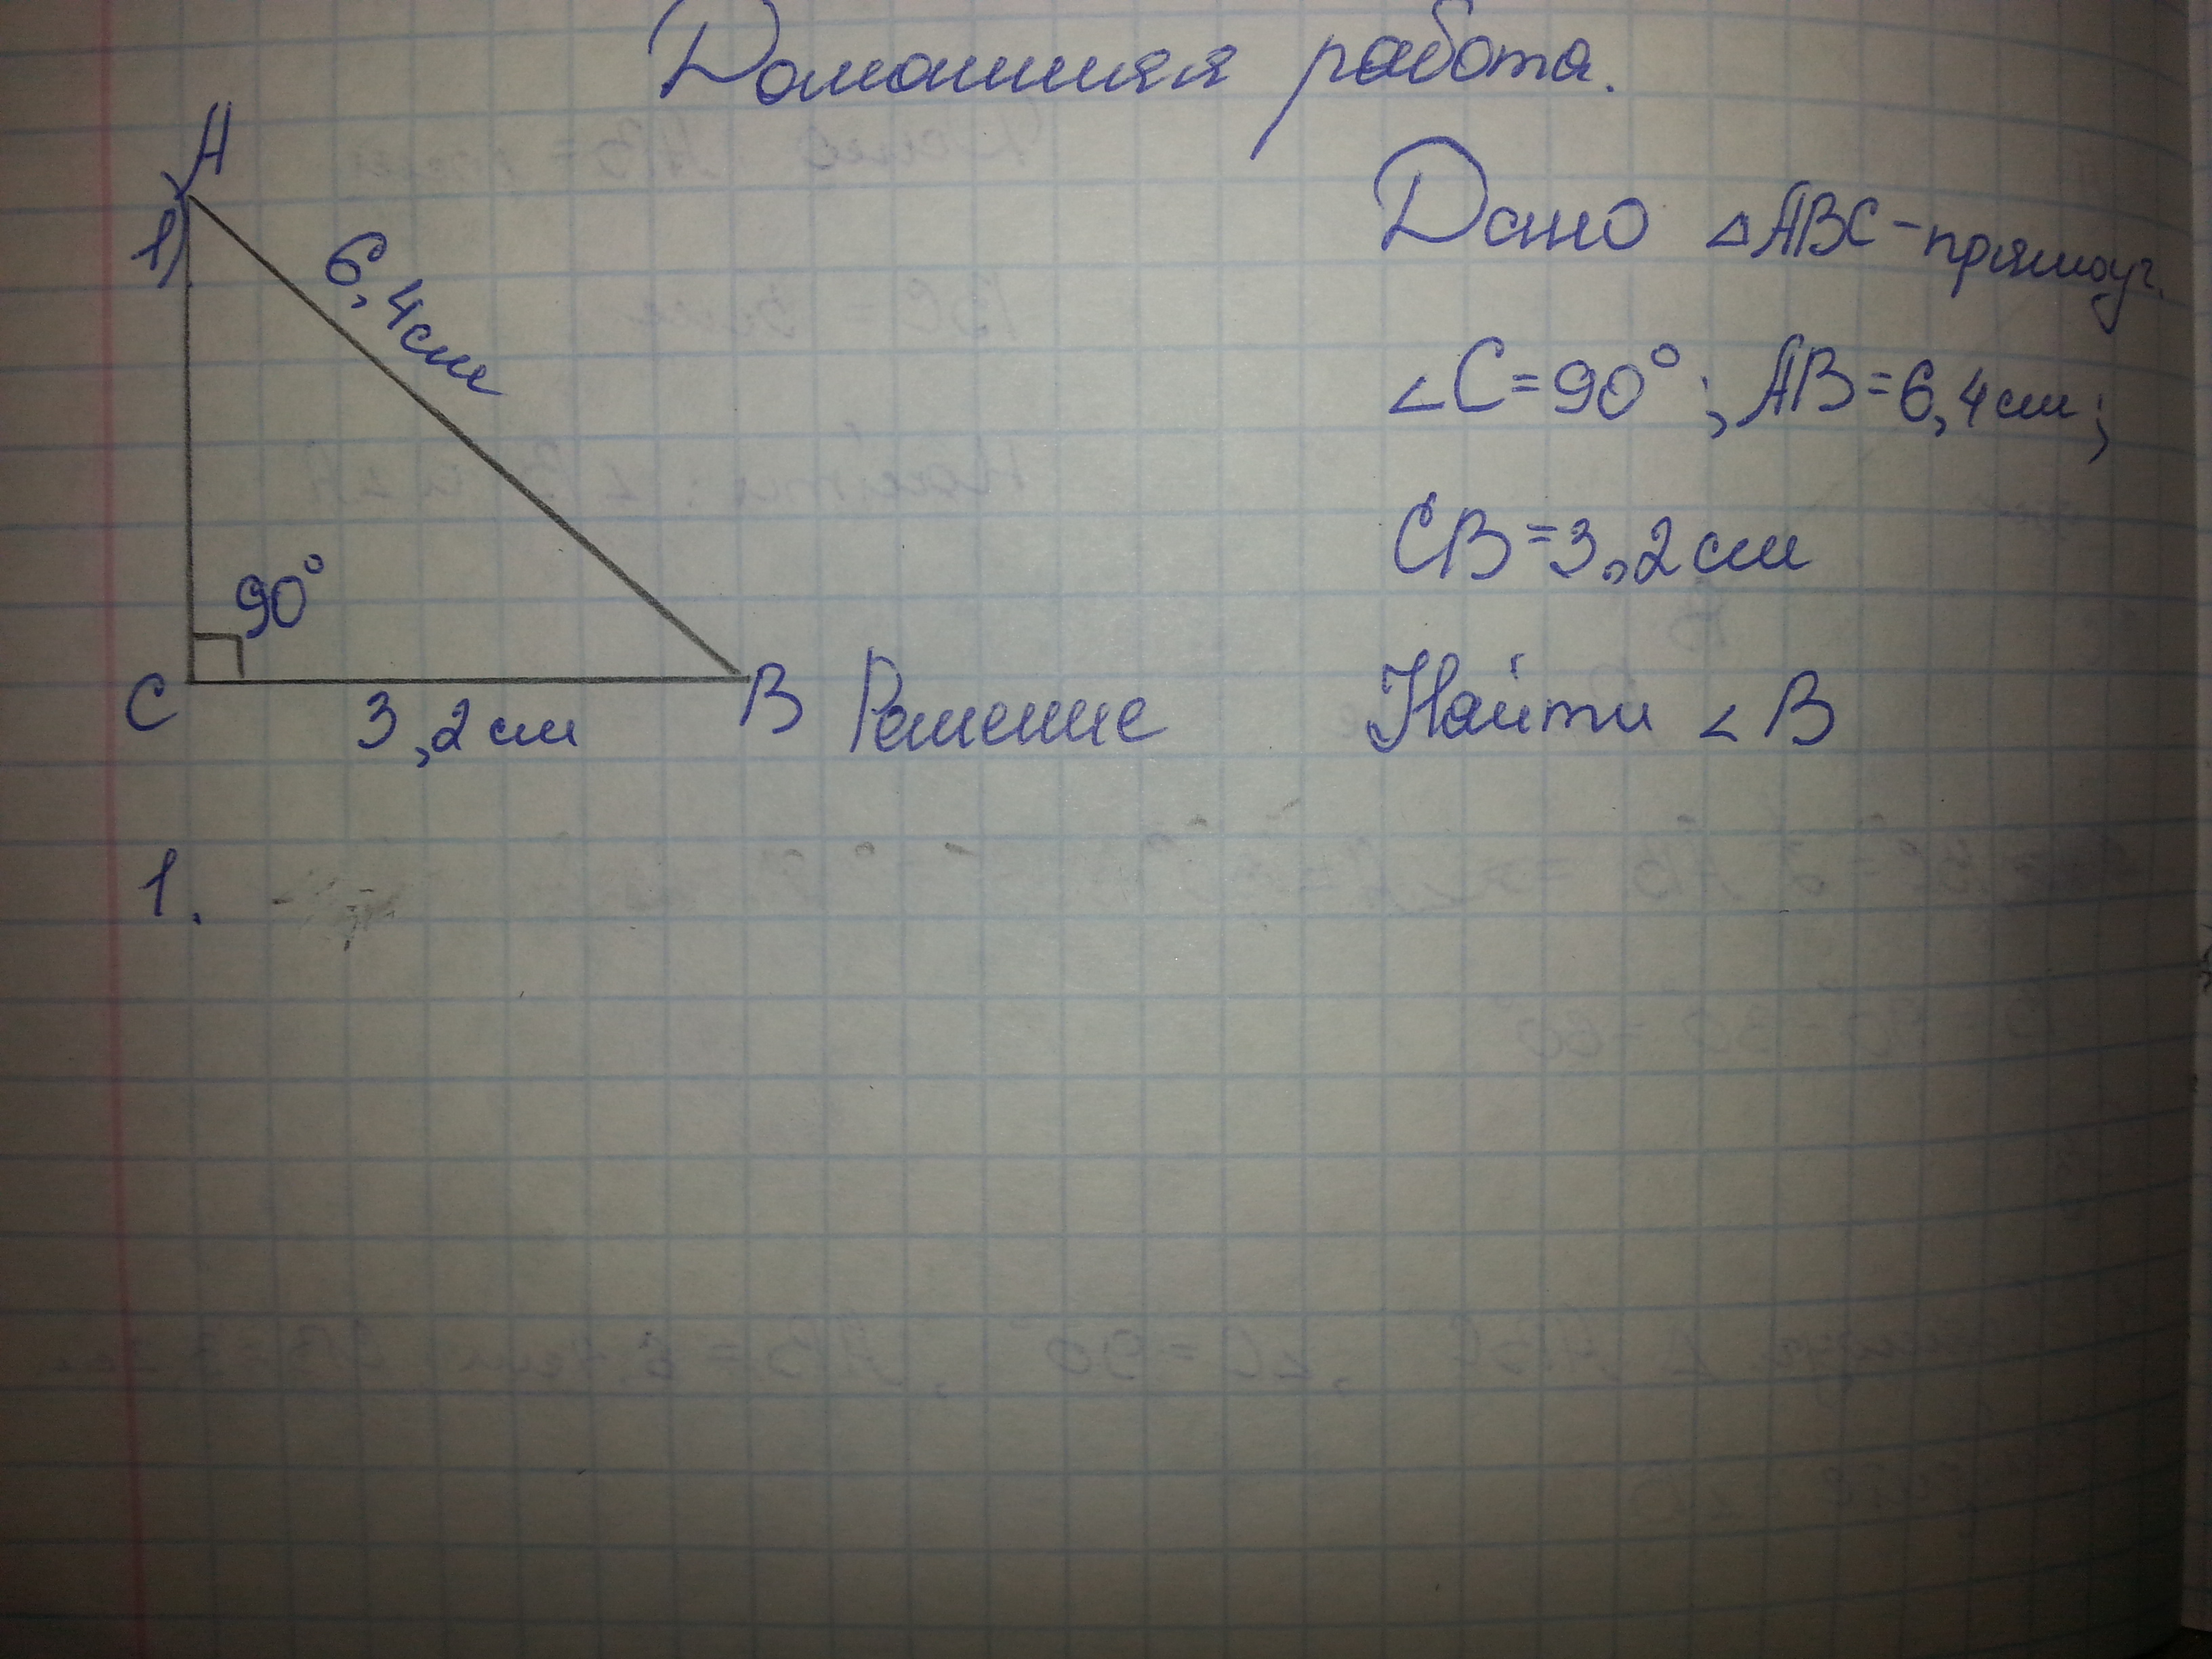 Домашняя работа.
A
1)
6,4см
90°
C
3,2см
B
Дано △ABC-прямоуг.
∠C=90°; AB=6,4см;
CB=3,2см
Решение
Найти ∠B
1.